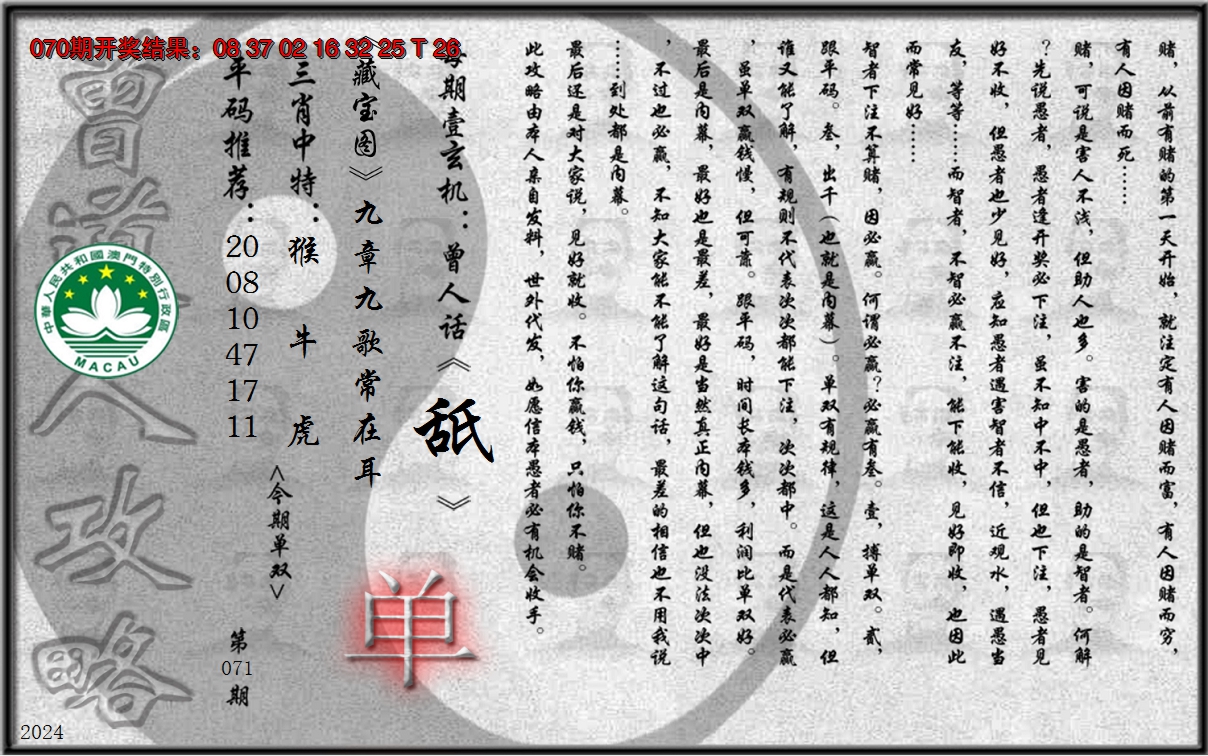 070期开奖结果：08 37 02 16 32 25 T 26
赌，从前有赌的第一天开始，就注定有人因赌而富，有人因赌而穷，
有人因赌而死……
赌，可说是害人不浅，但助人也多。害的是愚者，助的是智者。何解
？先说愚者，愚者逢开奖必下注，虽不知中不中，但也下注，愚者见
好不收，但愚者也少见好，应知愚者遇害智者不信，近观水，遇愚当
友，等等……而智者，不智必赢不注，能下能收，见好即收，也因此
而常见好……
智者下注不算赌，因必赢。何谓必赢？必赢有叁。壹，搏单双。贰，
跟平码。叁，出千（也就是内幕）。单双有规律，这是人人都知，但
谁又能了解，有规则不代表次次都能下注，次次都中。而是代表必赢
，虽单双赢钱慢，但可靠。跟平码，时间长本钱多，利润比单双好。
最后是内幕，最好也是最差，最好是当然真正内幕，但也没法次次中
，不过也必赢，不知大家能不能了解这句话，最差的相信也不用我说
……到处都是内幕。
最后还是对大家说，见好就收。不怕你赢钱，只怕你不赌。
此攻略由本人亲自发料，世外代发，如愿信本愚者必有机会收手。
每期壹玄机：曾人话《舐》
《藏宝图》九章九歌常在耳
单
三肖中特：猴 牛 虎
<今期单双>
平码推荐：20 08 10 47 17 11
第071期
曾道人攻略
中華人民共和國澳門特別行政區
MACAU
2024